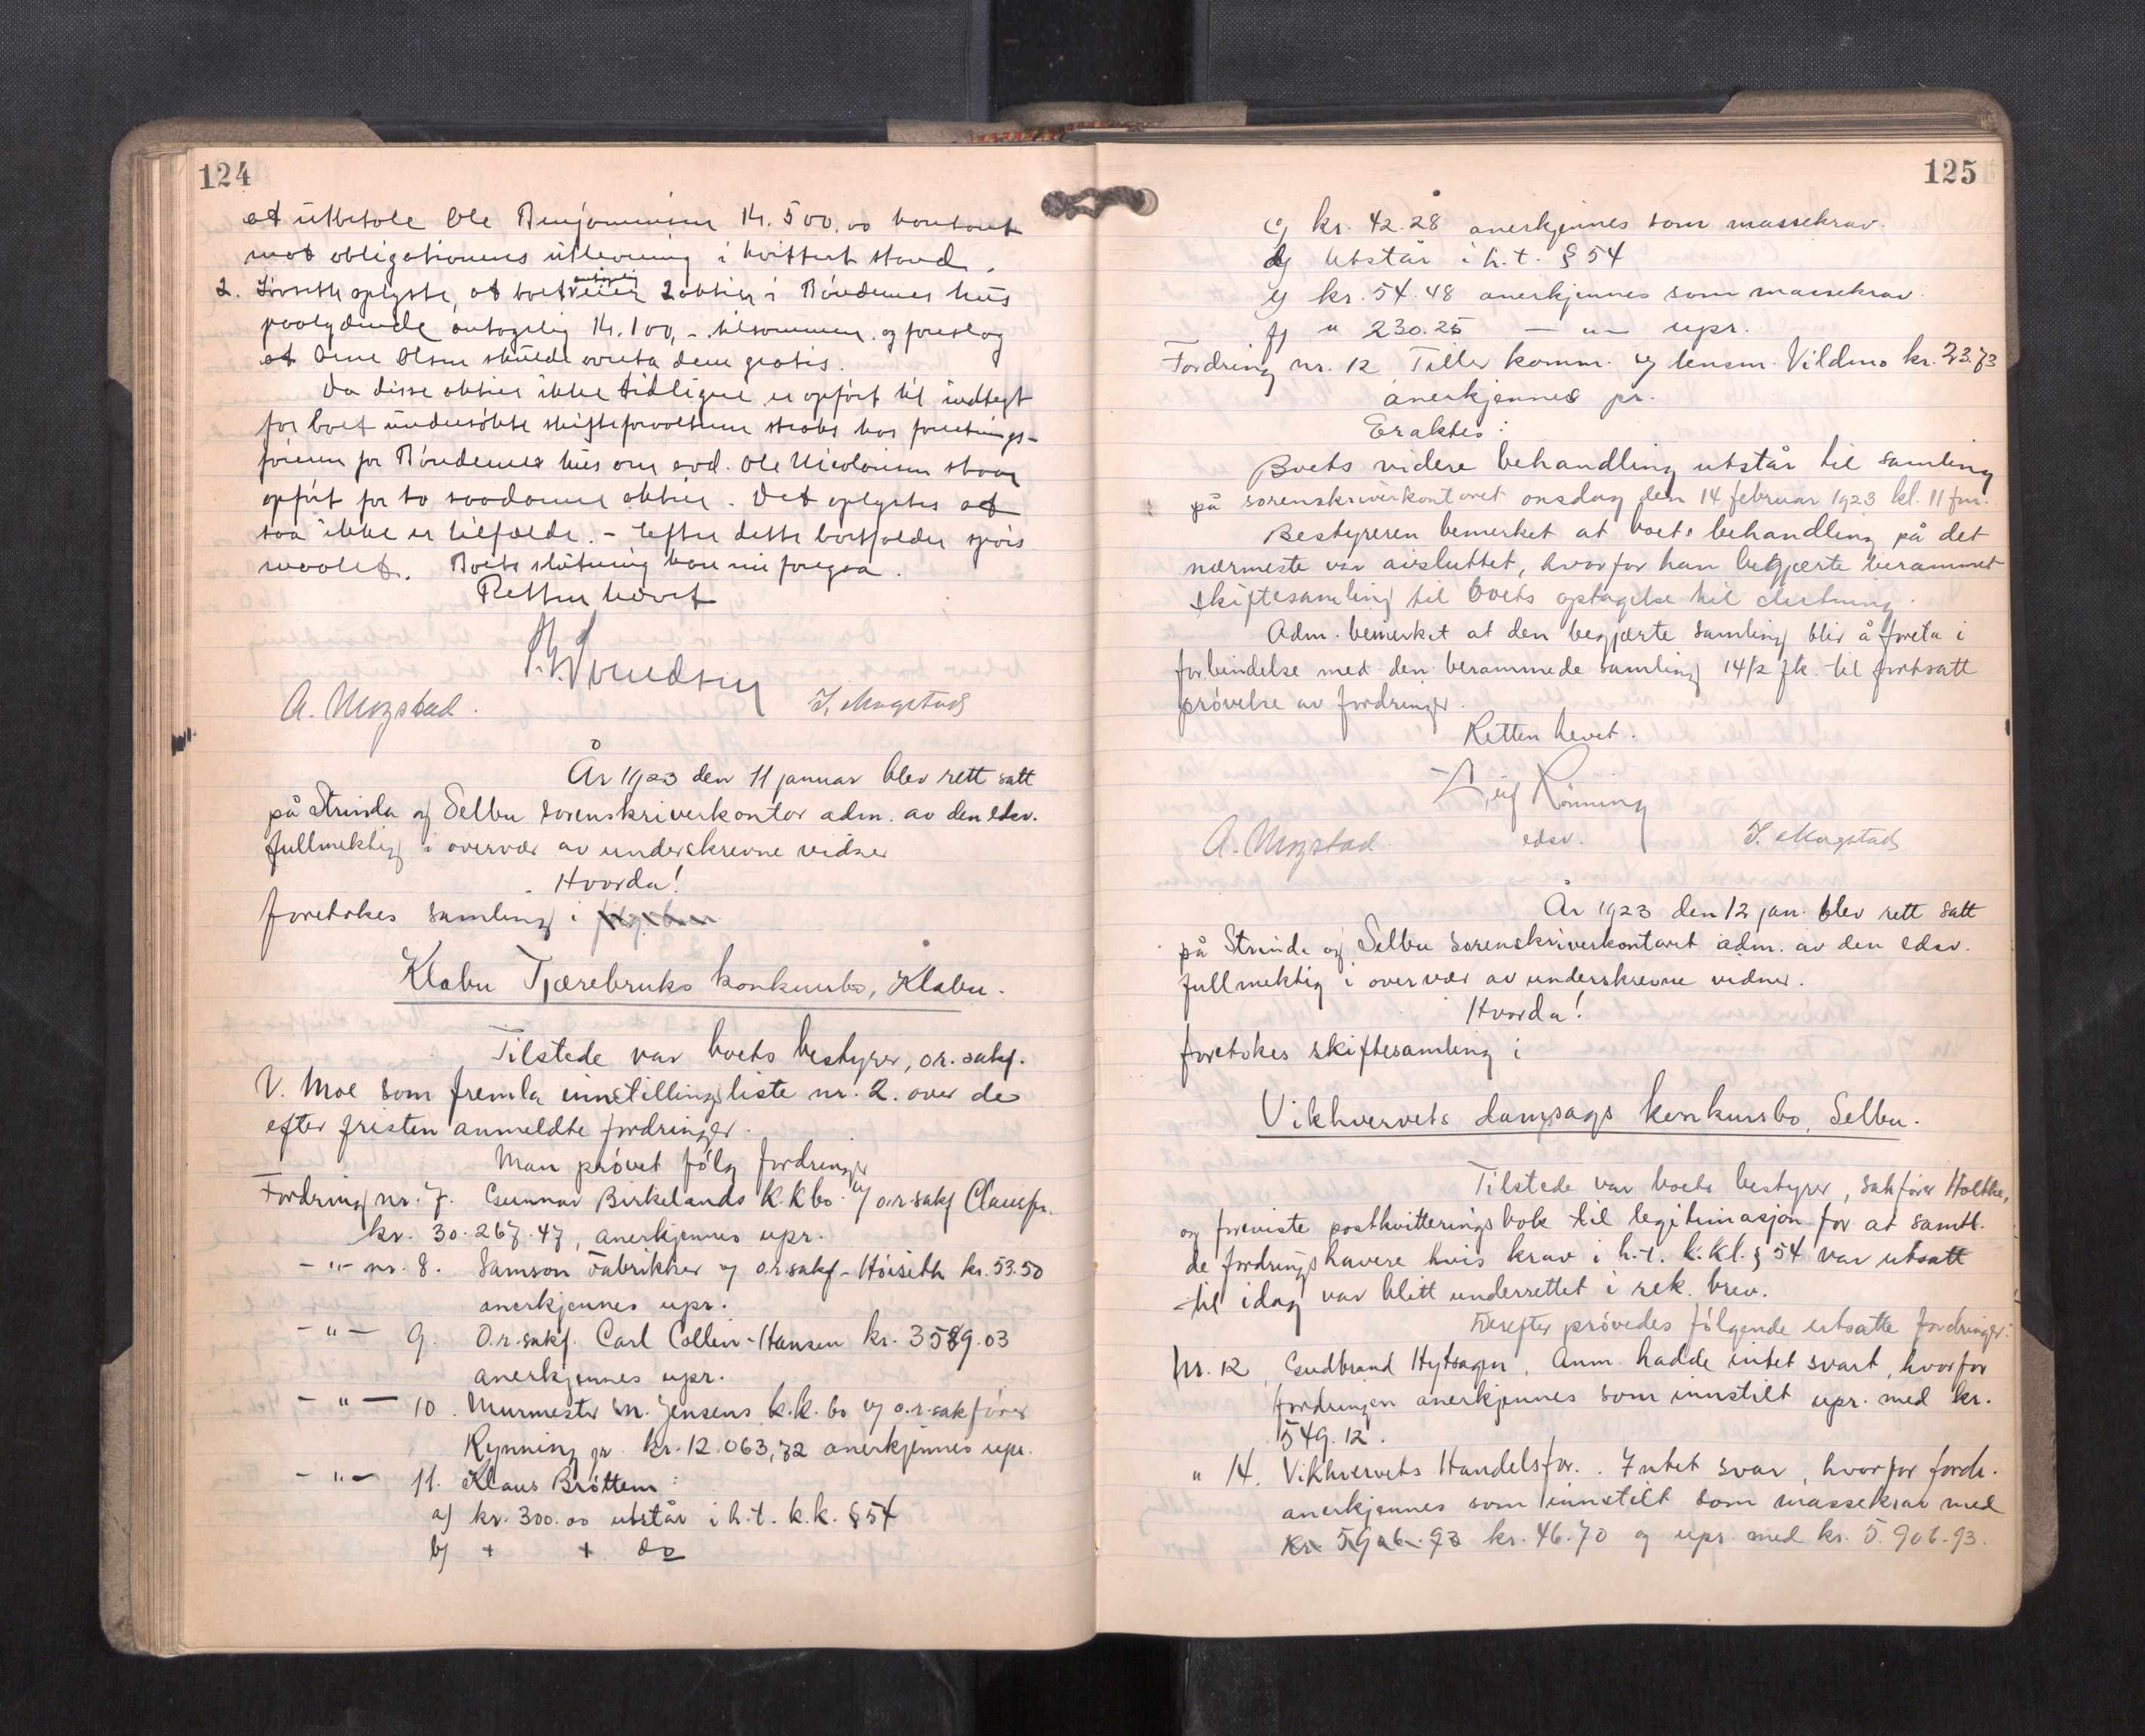 124
at utbetale Ole Benjaminsen Kr. 500,00 kontant
mot obligationens utlevering i kvittert stand.
2. oplyste, at boet antagelig eier 2 aktier i Böndernes hus
paalydende antagelig Kr. 100,- tilsammen og foreslog
at Arne Olsen skulde overta dem gratis.
Da disse aktier ikke tidligere er opfört til indtegt
for boet undersökte skifteforvalteren straks hos forretnings-
föreren for Böndernes hus om avd. Ole Nicolaisen staar
opfört for to saadanne aktier. Det oplystes at
saa ikke er tilfælde. - Efter dette bortfalder spörs
maalet. Boets slutning kan nu foregaa.
Retten hævet
A. Mogstad. J. Mogstad
År 1923 den 11 januar blev rett satt
på Strinda og Selbu sorenskriverkontor adm. av den edsv.
fullmektig i overvær av underskrevne vidner
Hvorda!
foretokes samling i
Klæbu Tjærebruks konkursbo, Klæbu.
Tilstede var boets bestyrer, o.r. sakf.
V. Moe som fremla innstillingsliste nr. 2. over de
efter fristen anmeldte fordringer.
Man prövet fölg fordringer
Fordring nr. 7. Gunnar Birkelands K.K bo v/ o.r sakf Clausen
kr. 30.267.47, anerkjennes upr.
- " - nr. 8. Samson Fabrikker v/ o.r.sakf. Höiseth kr. 53.50
anerkjennes upr.
- " - 9. O.r.sakf. Carl Collin-Hansen kr. 3589.03
anerkjennes upr.
- " - 10. Murmester M. Jensens k.k. bo v/ o.r. sakförer
Rynning pr. kr. 12.063,72 anerkjennes upr.
- " - 11. Klaus Bröttem:
a) kr. 300.00 utstår i h.t. k.k. § 54
b) + + do
125
c) kr. 42.28 anerkjennes som massekrav.
d) Utstår i h.t. § 54
e) kr. 54.48 anerkjennes som massekrav.
f) " 230.25 — " — upr.
Fordring nr. 12 Tiller komm. v/ lensm. Vildmo kr. 23.73
anerkjennes pr.
Eraktes:
Boets videre behandling utstår til samling
på sorenskriverkontoret onsdag den 14 februar 1923 kl. 11 fm.
Bestyreren bemerket at boets behandling på det
nærmeste var avsluttet, hvorfor han begjærte berammet
skiftesamling til boets optagelse til slutning.
Adm. bemerket at den begjærte samling blir å foreta i
forbindelse med den berammede samling 14/2 fk. til fortsatt
prövelse av fordringer.
Retten hevet.
Leif Rönning
A. Mogstad. edsv. J. Mogstad
År 1923 den 12 jan. blev rett satt
på Strinda og Selbu sorenskriverkontoret adm. av den edsv.
fullmektig i overvær av underskrevne vidner.
Hvorda!
foretokes skiftesamling i
Vikhvervets dampsags konkursbo, Selbu.
Tilstede var boets bestyrer, sakförer Holthe,
og foreviste postkvitteringsbok til legitimasjon for at samtl.
de fordringshavere hvis krav i h.t. k.kl. § 54 var utsatt
til idag var blitt underrettet i rek. brev.
Derefter prövedes fölgende utsatte fordringer:
Nr. 12, Gudbrand Hyttsagen. Anm. hadde intet svart, hvorfor
fordringen anerkjennes som innstilt upr. med kr.
549.12.
" 14. Vikhvervets Handelsfor.. Intet svar, hvorfor fordr.
anerkjennes som innstilt som massekrav med
kr. 5906.93 kr. 46.70 og upr. med kr. 5.906.93.